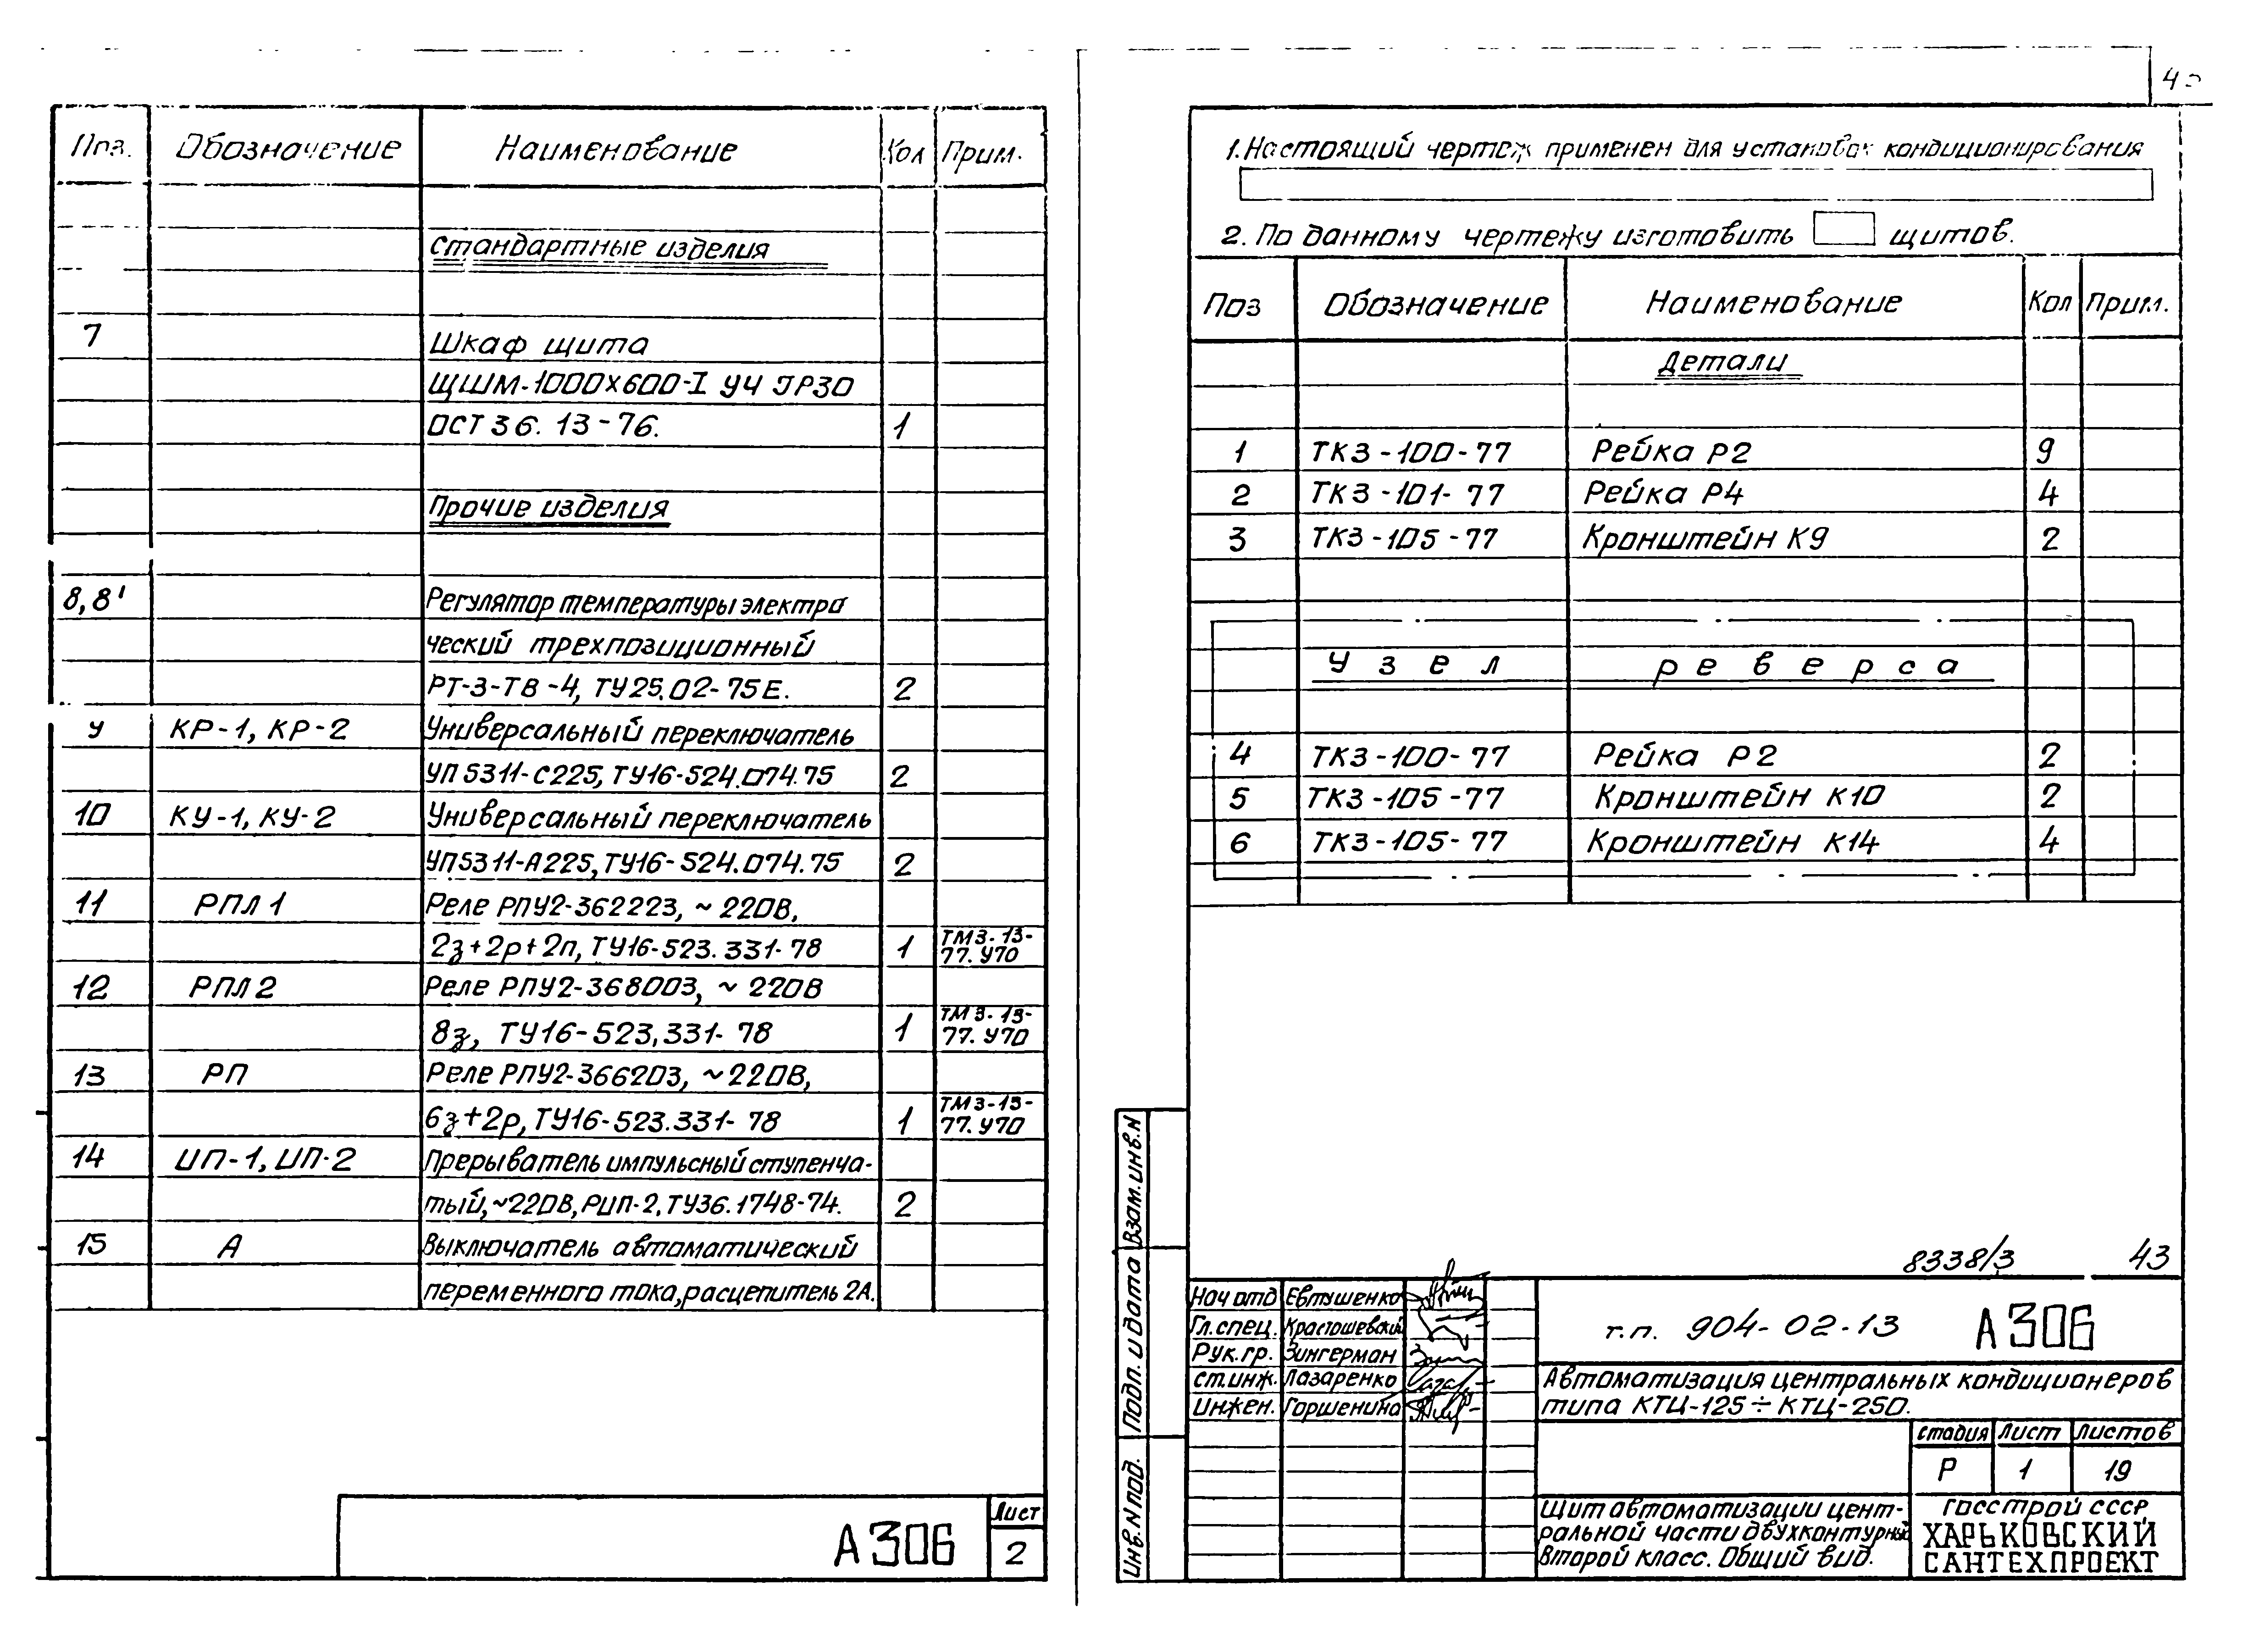 Поз. Обозначение Наименование Кол Прим.
Стандартные изделия
7 Шкаф щита
ЩШМ-1000х600-I У4 IP30
ОСТ 36. 13-76. 1
Прочие изделия
8,8' Регулятор температуры электри
ческий трехпозиционный
РТ-3-ТВ-4, ТУ25.02-75Е. 2
9 КР-1, КР-2 Универсальный переключатель
УП5311-С225, ТУ16-524.074.75 2
10 КУ-1, КУ-2 Универсальный переключатель
УП5311-А225, ТУ16-524.074.75 2
11 РПЛ1 Реле РПУ2-362223, ~ 220В,
2з+2р+2п, ТУ16-523.331-78 1 ТМ3-13-
77. У70
12 РПЛ2 Реле РПУ2-368003, ~ 220В
8з, ТУ16-523,331-78 1 ТМ3-13-
77. У70
13 РП Реле РПУ2-366203, ~220В,
6з+2р, ТУ16-523.331-78 1 ТМ3-13-
77. У70
14 ИП-1, ИП-2 Прерыватель импульсный ступенча-
тый, ~220В, РИП-2, ТУ36.1748-74. 2
15 А Выключатель автоматический
переменного тока, расцепитель 2А.
А306
Лист
2
1. Настоящий чертеж применен для установок кондиционирования
2. По данному чертежу изготовить щитов.
Поз Обозначение Наименование Кол Прим.
Детали
1 ТК3-100-77 Рейка Р2 9
2 ТК3-101-77 Рейка Р4 4
3 ТК3-105-77 Кронштейн К9 2
Узел реверса
4 ТК3-100-77 Рейка Р2 2
5 ТК3-105-77 Кронштейн К10 2
6 ТК3-105-77 Кронштейн К14 4
8338/3 43
Взам.инв.N
Подп. и дата
Инв.N под.
Нач отд Евтушенко
Гл.спец. Красташевский
Рук.гр. Зингерман
ст.инж. Лазаренко
Инжен. Горшенина
т.п. 904-02-13 А306
Автоматизация центральных кондиционеров
типа КТЦ-125÷КТЦ-250.
стадия Лист Листов
Р 1 19
Щит автоматизации цент-
ральной части двухконтурный
Второй класс. Общий вид.
ГОССТРОЙ СССР
ХАРЬКОВСКИЙ
САНТЕХПРОЕКТ